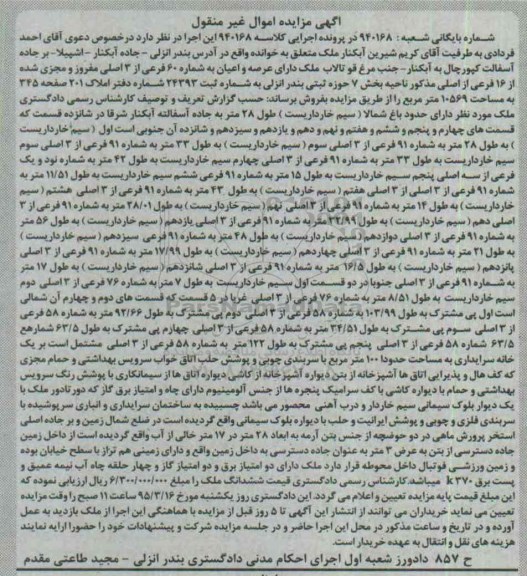 آگهی مزایده اموال غیر منقول
شماره بایگانی شعبه : ۹۴۰۱۶۸ در پرونده اجرایی کلاسه ۹۴۰۱۶۸ این اجرا در نظر دارد درخصوص دعوی آقای احمد
فردادی به طرفیت آقای کریم شیرین آبکنار ملک متعلق به خوانده واقع در آدرس بندر انزلی - جاده آبکنار - اشپیلا- بر جاده
آسفالت کپورچال به آبکنار - جنب مرغ قو تالاب ملک دارای عرصه و اعیان به شماره ۶۰ فرعی از ۳ اصلی مفروز و مجزی شده
از ۱۶ فرعی از اصلی مذکور ناحیه بخش ۷ حوزه ثبتی بندر انزلی به شماره ثبت ۲۴۳۹۳ شماره دفتر املاک ۲۰۱ صفحه ۳۴۵
به مساحت ۱۰۵۶۹ متر مربع را از طریق مزایده بفروش برساند: حسب گزارش تعریف و توصیف کارشناس رسمی دادگستری
ملک مورد نظر دارای حدود باغ شمالا ( سیم خارداریست ) طول ۲۸ متر به جاده آسفالته آبکنار شرقا در شانزده قسمت که
قسمت های چهارم و پنجم و ششم و هفتم و نهم و دهم و یازدهم و سیزدهم و شانزده آن جنوبی است اول ( سیم خارداریست
) به طول ۲۸ متر به شماره ۹۱ فرعی از ۳ اصلی سوم ( سیم خارداریست ) به طول ۳۳ متر به شماره ۹۱ فرعی از ۳ اصلی سوم
سیم خارداریست به طول ۳۳ متر به شماره ۹۱ فرعی از ۳ اصلی چهارم سیم خارداریست به طول ۴۲ متر به شماره نود و یک
فرعی از سه اصلی پنجم سیم خارداریست به طول ۱۵ متر به شماره ۹۱ فرعی ششم سیم خارداریست به طول ۱۱/۵۱ متر به
شماره ۹۱ فرعی از ۳ اصلی از ۳ اصلی هفتم ( سیم خارداریست ) به طول ۴۳ متر به شماره ۹۱ فرعی از ۳ اصلی هشتم ( سیم
خارداریست ) به طول ۱۴ متر به شماره ۹۱ فرعی از ۳ اصلی نهم ( سیم خارداریست ) به طول ۲۸/۰۱ متر به شماره ۹۱ فرعی از ۳
اصلی دهم ( سیم خارداریست ) به طول ۲۲/۹۹ متر به شماره ۹۱ فرعی از ۳ اصلی یازدهم ( سیم خارداریست ) به طول ۵۶ متر
به شماره ۹۱ فرعی از ۳ اصلی دوازدهم ( سیم خارداریست ) به طول ۴۸ متر به شماره ۹۱ فرعی سیزدهم ( سیم خارداریست )
به طول ۳۱ متر به شماره ۹۱ فرعی از ۳ اصلی چهاردهم ( سیم خارداریست ) به طول ۱۷/۹۹ متر به شماره ۹۱ فرعی از ۳ اصلی
پانزدهم ( سیم خارداریست ) به طول ۱۶/۵ متر به شماره ۹۱ فرعی از ۳ اصلی شانزدهم ( سیم خارداریست ) به طول ۱۷ متر
به شماره ۹۱ فرعی از ۳ اصلی جنوبا در دو قسمت اول سیم خاردار یست به طول ۷ متر به شماره ۷۶ فرعی از ۳ اصلی دوم
سیم خاردار یست به طول ۸/۵۱ متر به شماره ۷۶ فرعی از ۳ اصلی غربا در ۵ قسمت که قسمت های دوم و چهارم آن شمالی
است اول پی مشترک به طول ۱۰۳/۹۹ به شماره ۵۸ فرعی از ۳ اصلی دوم پی مشترک به طول ۹۲/۶۶ متر به شماره ۵۸ فرعی
از ۳ اصلی سوم پی مشترک به طول ۳۴/۵۱ متر به شماره ۵۸ فرعی از ۳ اصلی چهارم پی مشترک به طول ۶۳/۵ شماره‌هع
۶۳/۵ شماره ۵۸ فرعی از ۳ اصلی پنجم پی مشترک به طول ۱۲۲ متر به شماره ۵۸ فرعی از ۳ اصلی مشتمل است بر یک
خانه سرایداری به مساحت حدودا ۱۰۰ متر مربع با سربندی چوبی و پوشش حلب اتاق خواب سرویس بهداشتی و حمام مجزی
که کف هال و پذیرایی اتاق ها آشپزخانه از بتن دیواره آشپزخانه از کاشی دیواره اتاق ها از سیمانکاری با پوشش رنگ سرویس
بهداشتی و حمام با دیواره کاشی با کف سرامیک پنجره ها از جنس آلومینیوم دارای چاه و امتیاز برق گاز که دور تادور ملک با
یک دیوار بلوک سیمانی سیم خاردار و درب آهنی محصور می باشد چسبیده به ساختمان سرایداری و انباری سرپوشیده با
سربندی فلزی و چوبی و پوشش ایرانیت و حلب با دیواره بلوک سیمانی واقع گردیده است در ضلع شمال زمین و بر جاده اصلی
استخر پرورش ماهی در دو حوضچه از جنس بتن آرمه به ابعاد ۲۸ متر در ۱۷ متر خالی از آب واقع گردیده است از داخل زمین
جاده دسترسی از بتن به عرض ۳ متر به عنوان جاده دسترسی به داخل زمین واقع و دارای زمینی هم تراز با سطح خیابان بوده
و زمین ورزشی فوتبال داخل محوطه قرار دارد ملک دارای دو امتیاز برق و دو امتیاز گاز و چهار حلقه چاه آب نیمه عمیق و
پست برق ۳۷۰ k میباشد.کارشناس رسمی دادگستری قیمت ششدانگ ملک را مبلغ ۶/۳۰۰/۰۰۰/۰۰۰ ریال ارزیابی نموده که
این مبلغ قیمت پایه مزایده تعیین و اعلام می گردد. این دادگستری روز یکشنبه مورخ ۹۵/۳/۱۶ ساعت ۱۱ صبح را وقت مزایده
تعیین می نماید خریداران می توانند از انتشار این آگهی تا ۵ روز قبل از مزایده با هماهنگی این اجرا از ملک بازدید به عمل
آورده و در تاریخ و ساعت مذکور در محل این اجرا حاضر و در جلسه مزایده شرکت و پیشنهادات خود را حضورا ارایه نمایند
هزینه های نقل و انتقال به عهده خریدار است.
ح ۸۵۷ دادورز شعبه اول اجرای احکام مدنی دادگستری بندر انزلی - مجید طاعتی مقدم